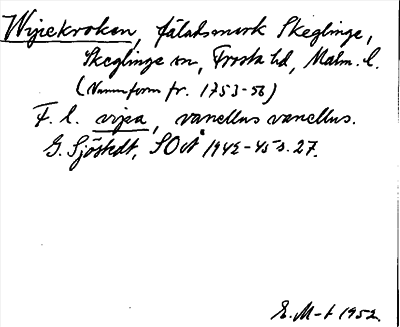 Wipiekroken, fälatsmark Skeglinge,
Skeglinge sn, Frosta hd, Malm. l.
(Namnform fr. 1753-56)
F. l. vipa, vanellus vanellus.
G. Sjöstedt, SOÅ 1942-45 s. 27.
E. M-t 1952.